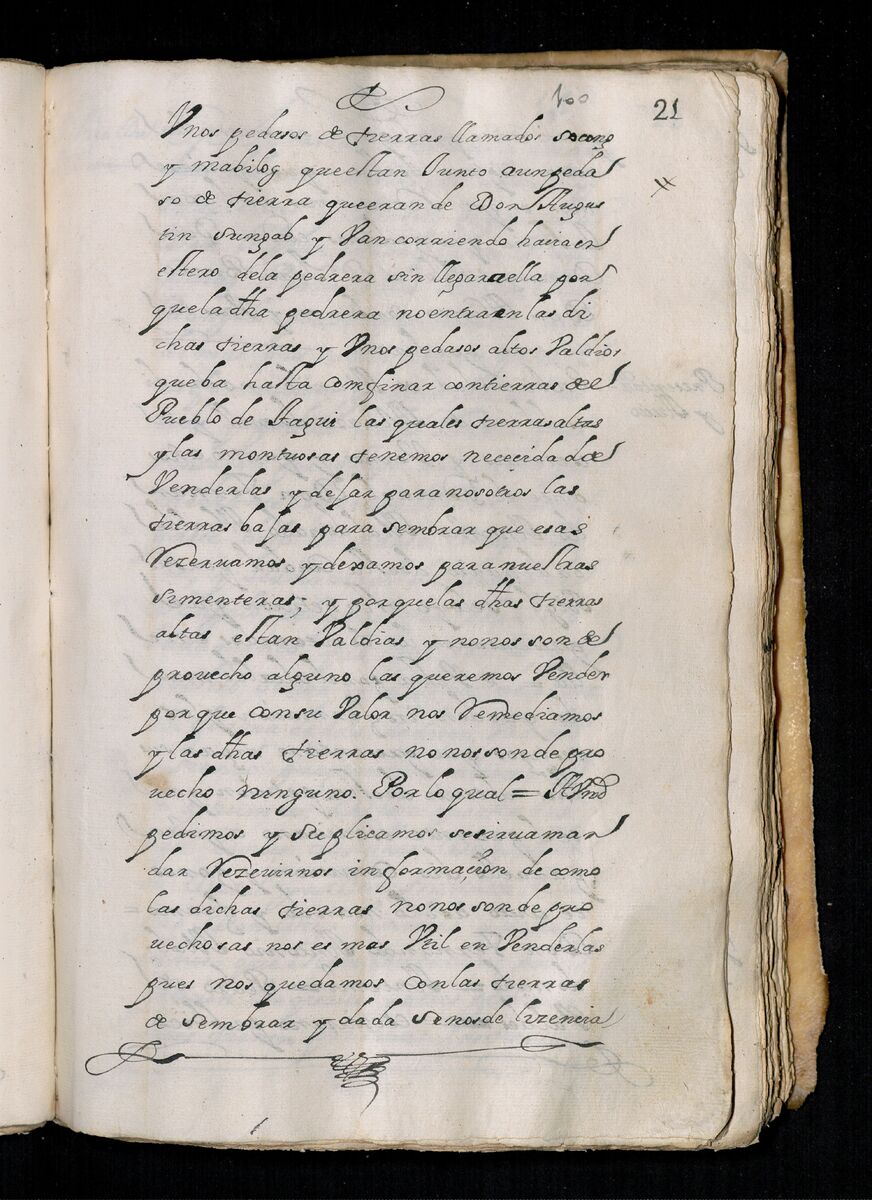 100
21
Vnos pedasos de tierras llamados socong
y mabilog que estan Junto aunpeda
so de tierra queeran de Don Augus
tin sungab y Van corriendo hacia el
estero dela pedrera sin llegar aella por
quela dha pedrera noentraenlas di
chas tierras y Vnos pedasos altos Valdios
queba hasta comfinar contierras del
Pueblo de Taguì las quales tierras altas
y las montuosas tenemos nececidad de
Venderlas y desar paranosotros las
tierras basas para sembrar que esas
Rezervamos y dexamos para nuestras
simenteras; y porquelas dhas tierras
altas estan Valdias y nonos son de
provecho alguno las queremos Vender
porque consu Valor nos Remediamos
y las dhas tierras nonos son de pro
vecho ninguno. Por lo qual = AVmd
pedimos y suplicamos sesirva man
dar Rezevirnos informacion de como
las dichas tierras nonos son de pro
vechosas nos es mas Vtil en Venderlas
pues nos quedamos conlas tierras
de sembrar y dada senos de lizencia